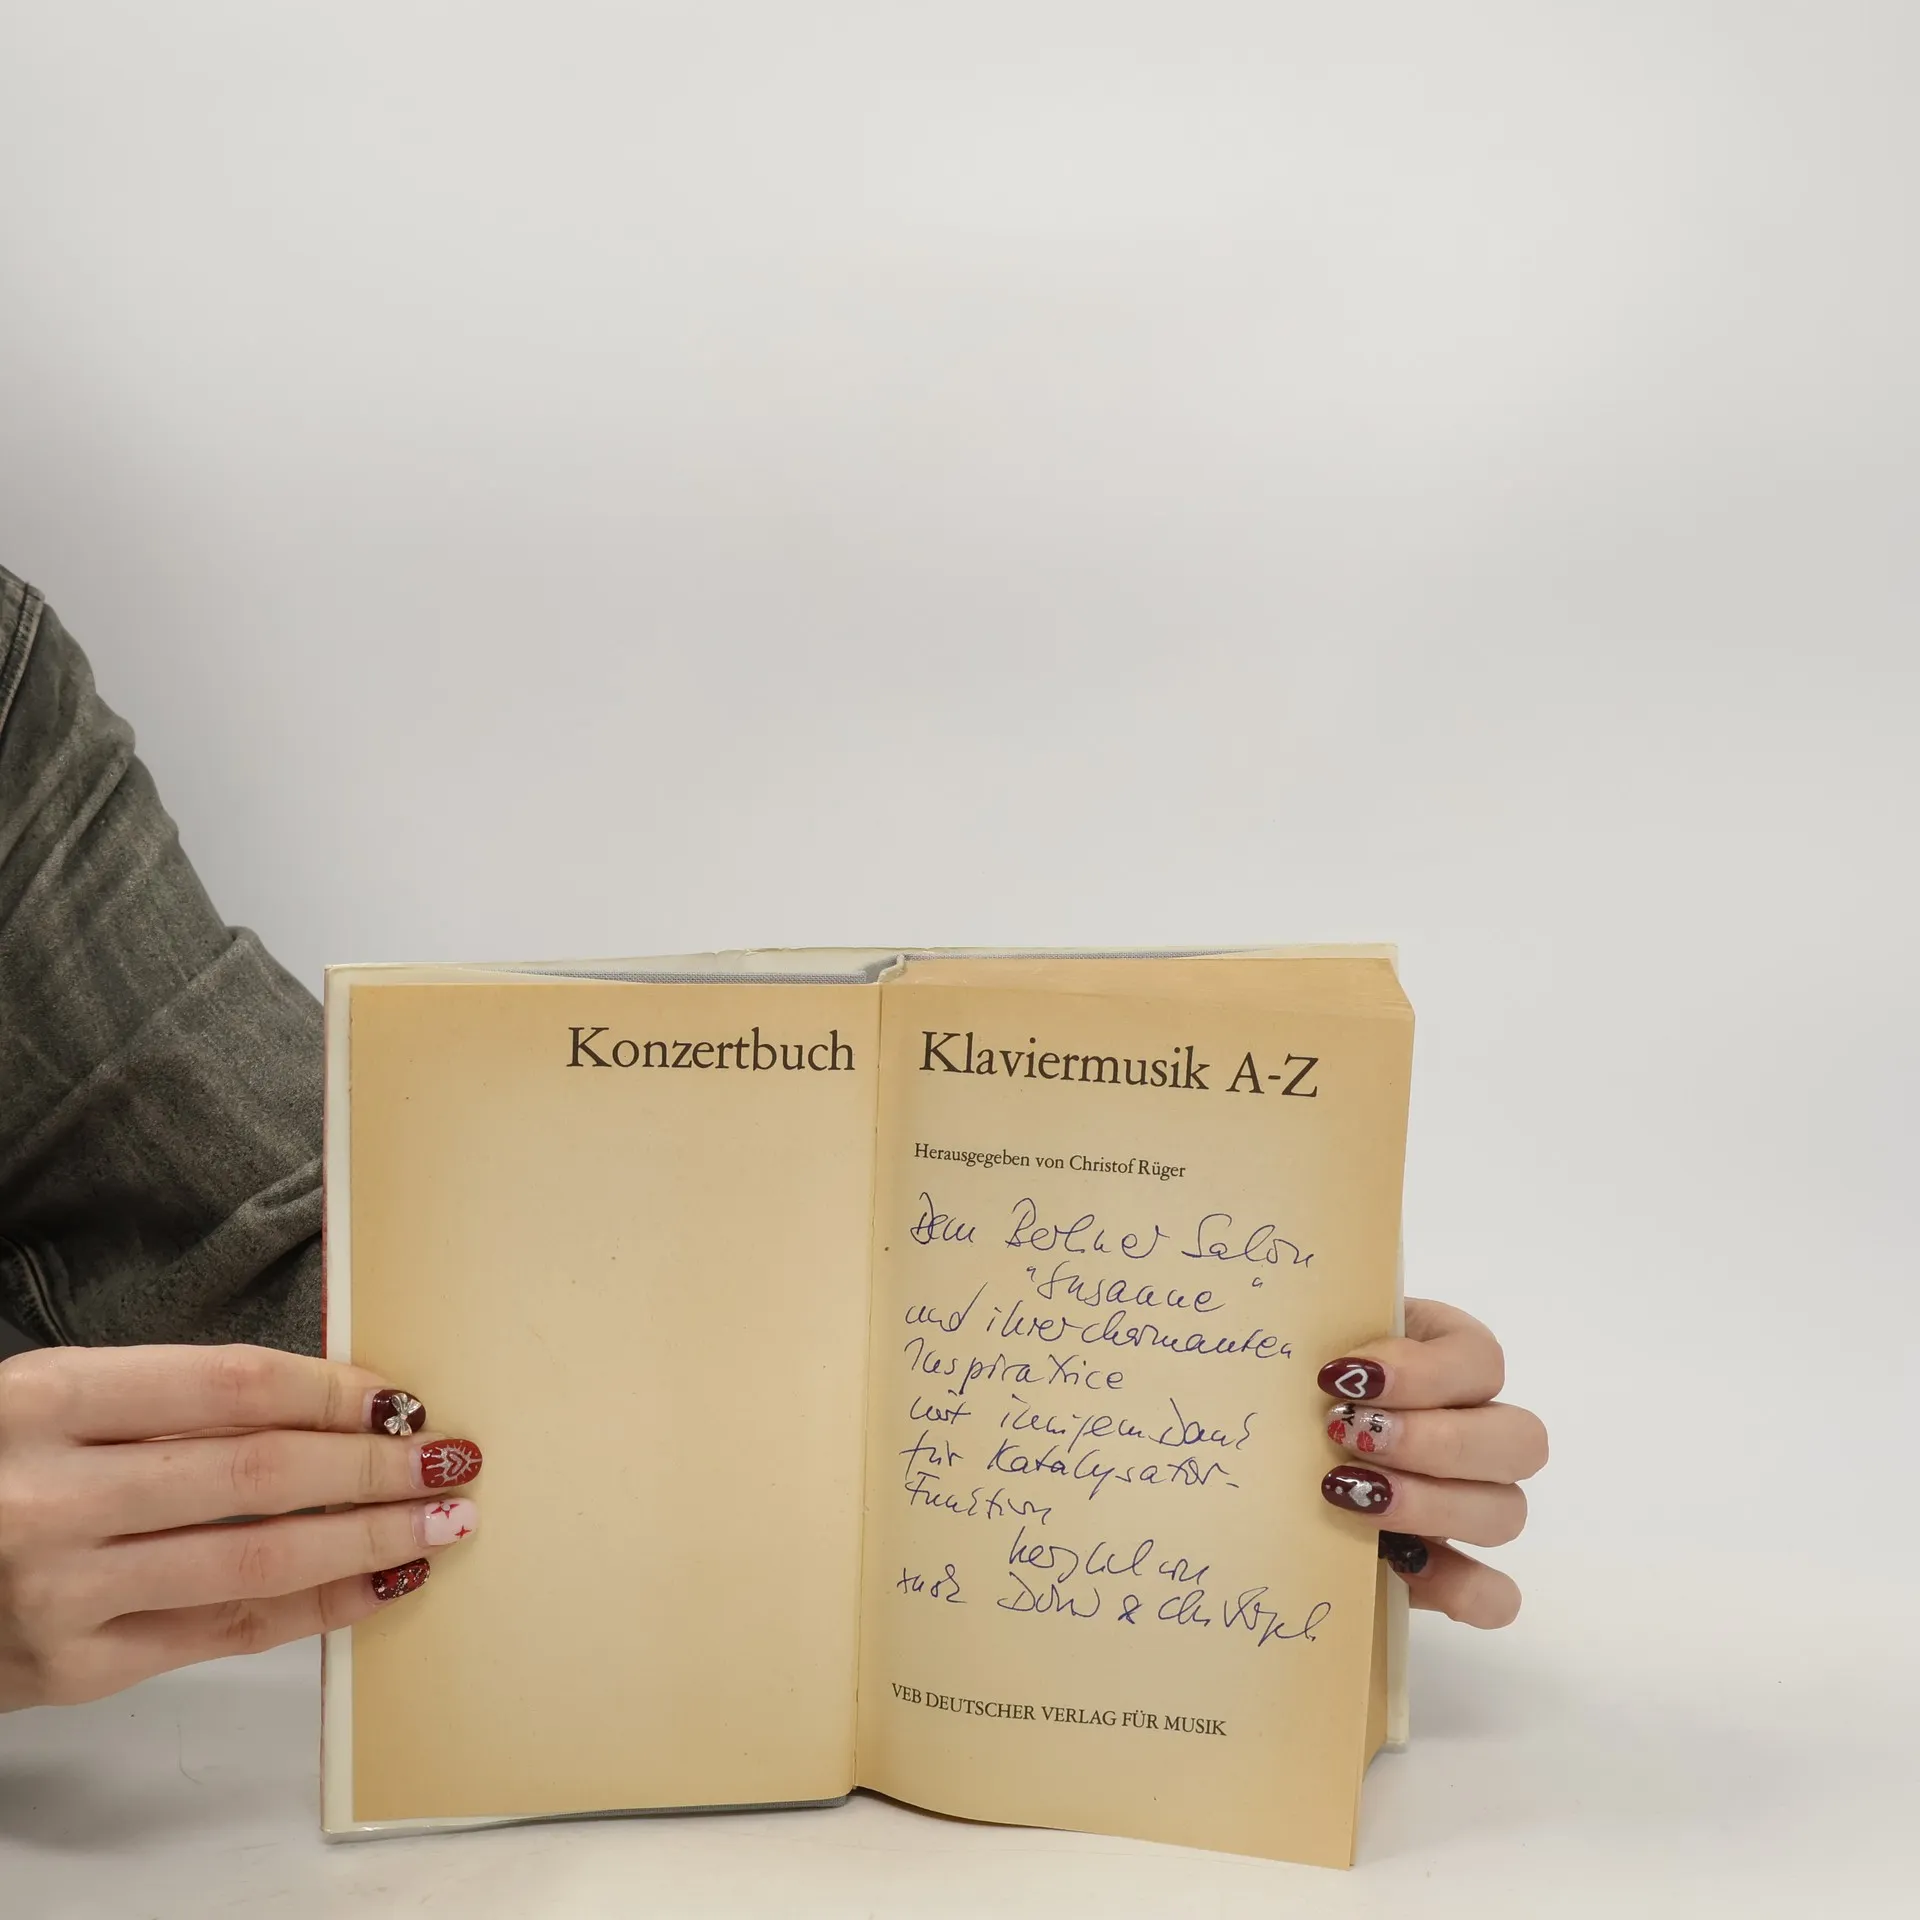 Konzertbuch
Klaviermusik A-Z
Herausgegeben von Christof Rüger
Dem Berliner Salon
"Susanne"
und ihrer charmanten
Inspiratrice
mit innigem Dank
für Katalysator-
Funktion
herzlich
&
VEB DEUTSCHER VERLAG FÜR MUSIK
MY UR